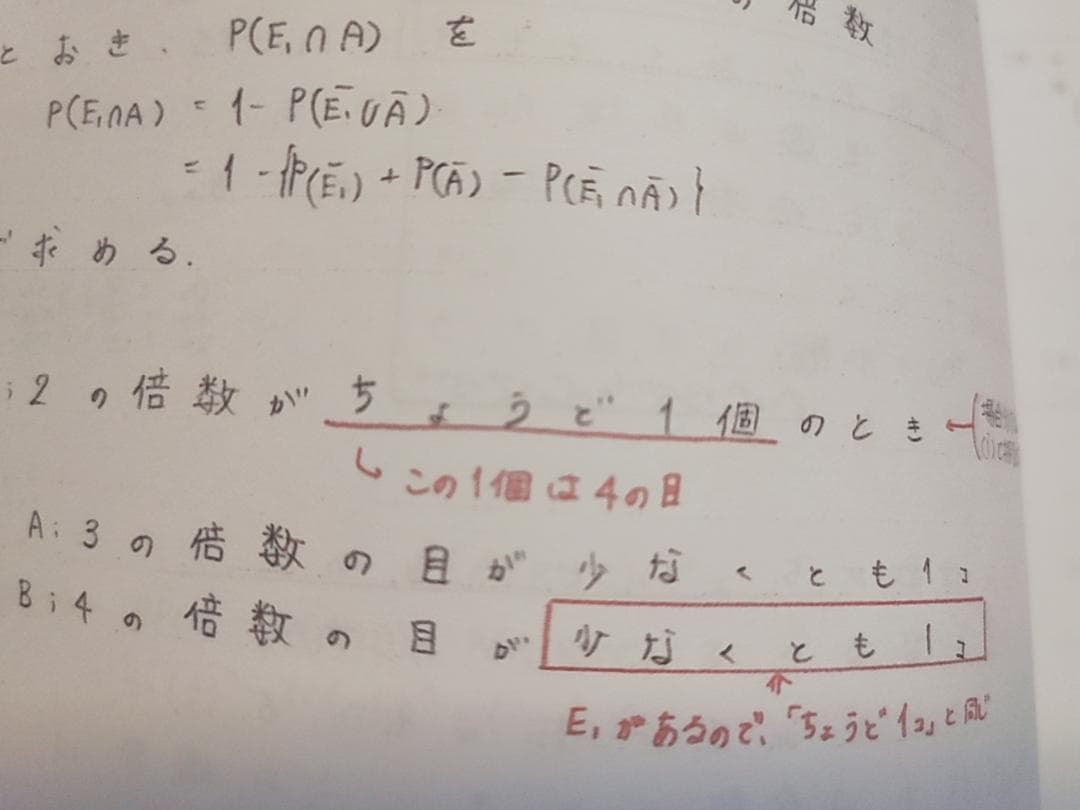 の倍数
とおき. P(E₁∩A) を
P(E₁∩A) = 1- P(E̅₁∪A̅)
= 1 -{P(E̅₁) + P(A̅) - P(E̅₁∩A̅)}
求める.
; 2の倍数がちょうど1個のとき ←
この1個は4の目
A; 3の倍数の目が少なくとも1コ
B; 4の倍数の目が少なくとも1コ
E₁があるので、「ちょうど1コ」と同じ